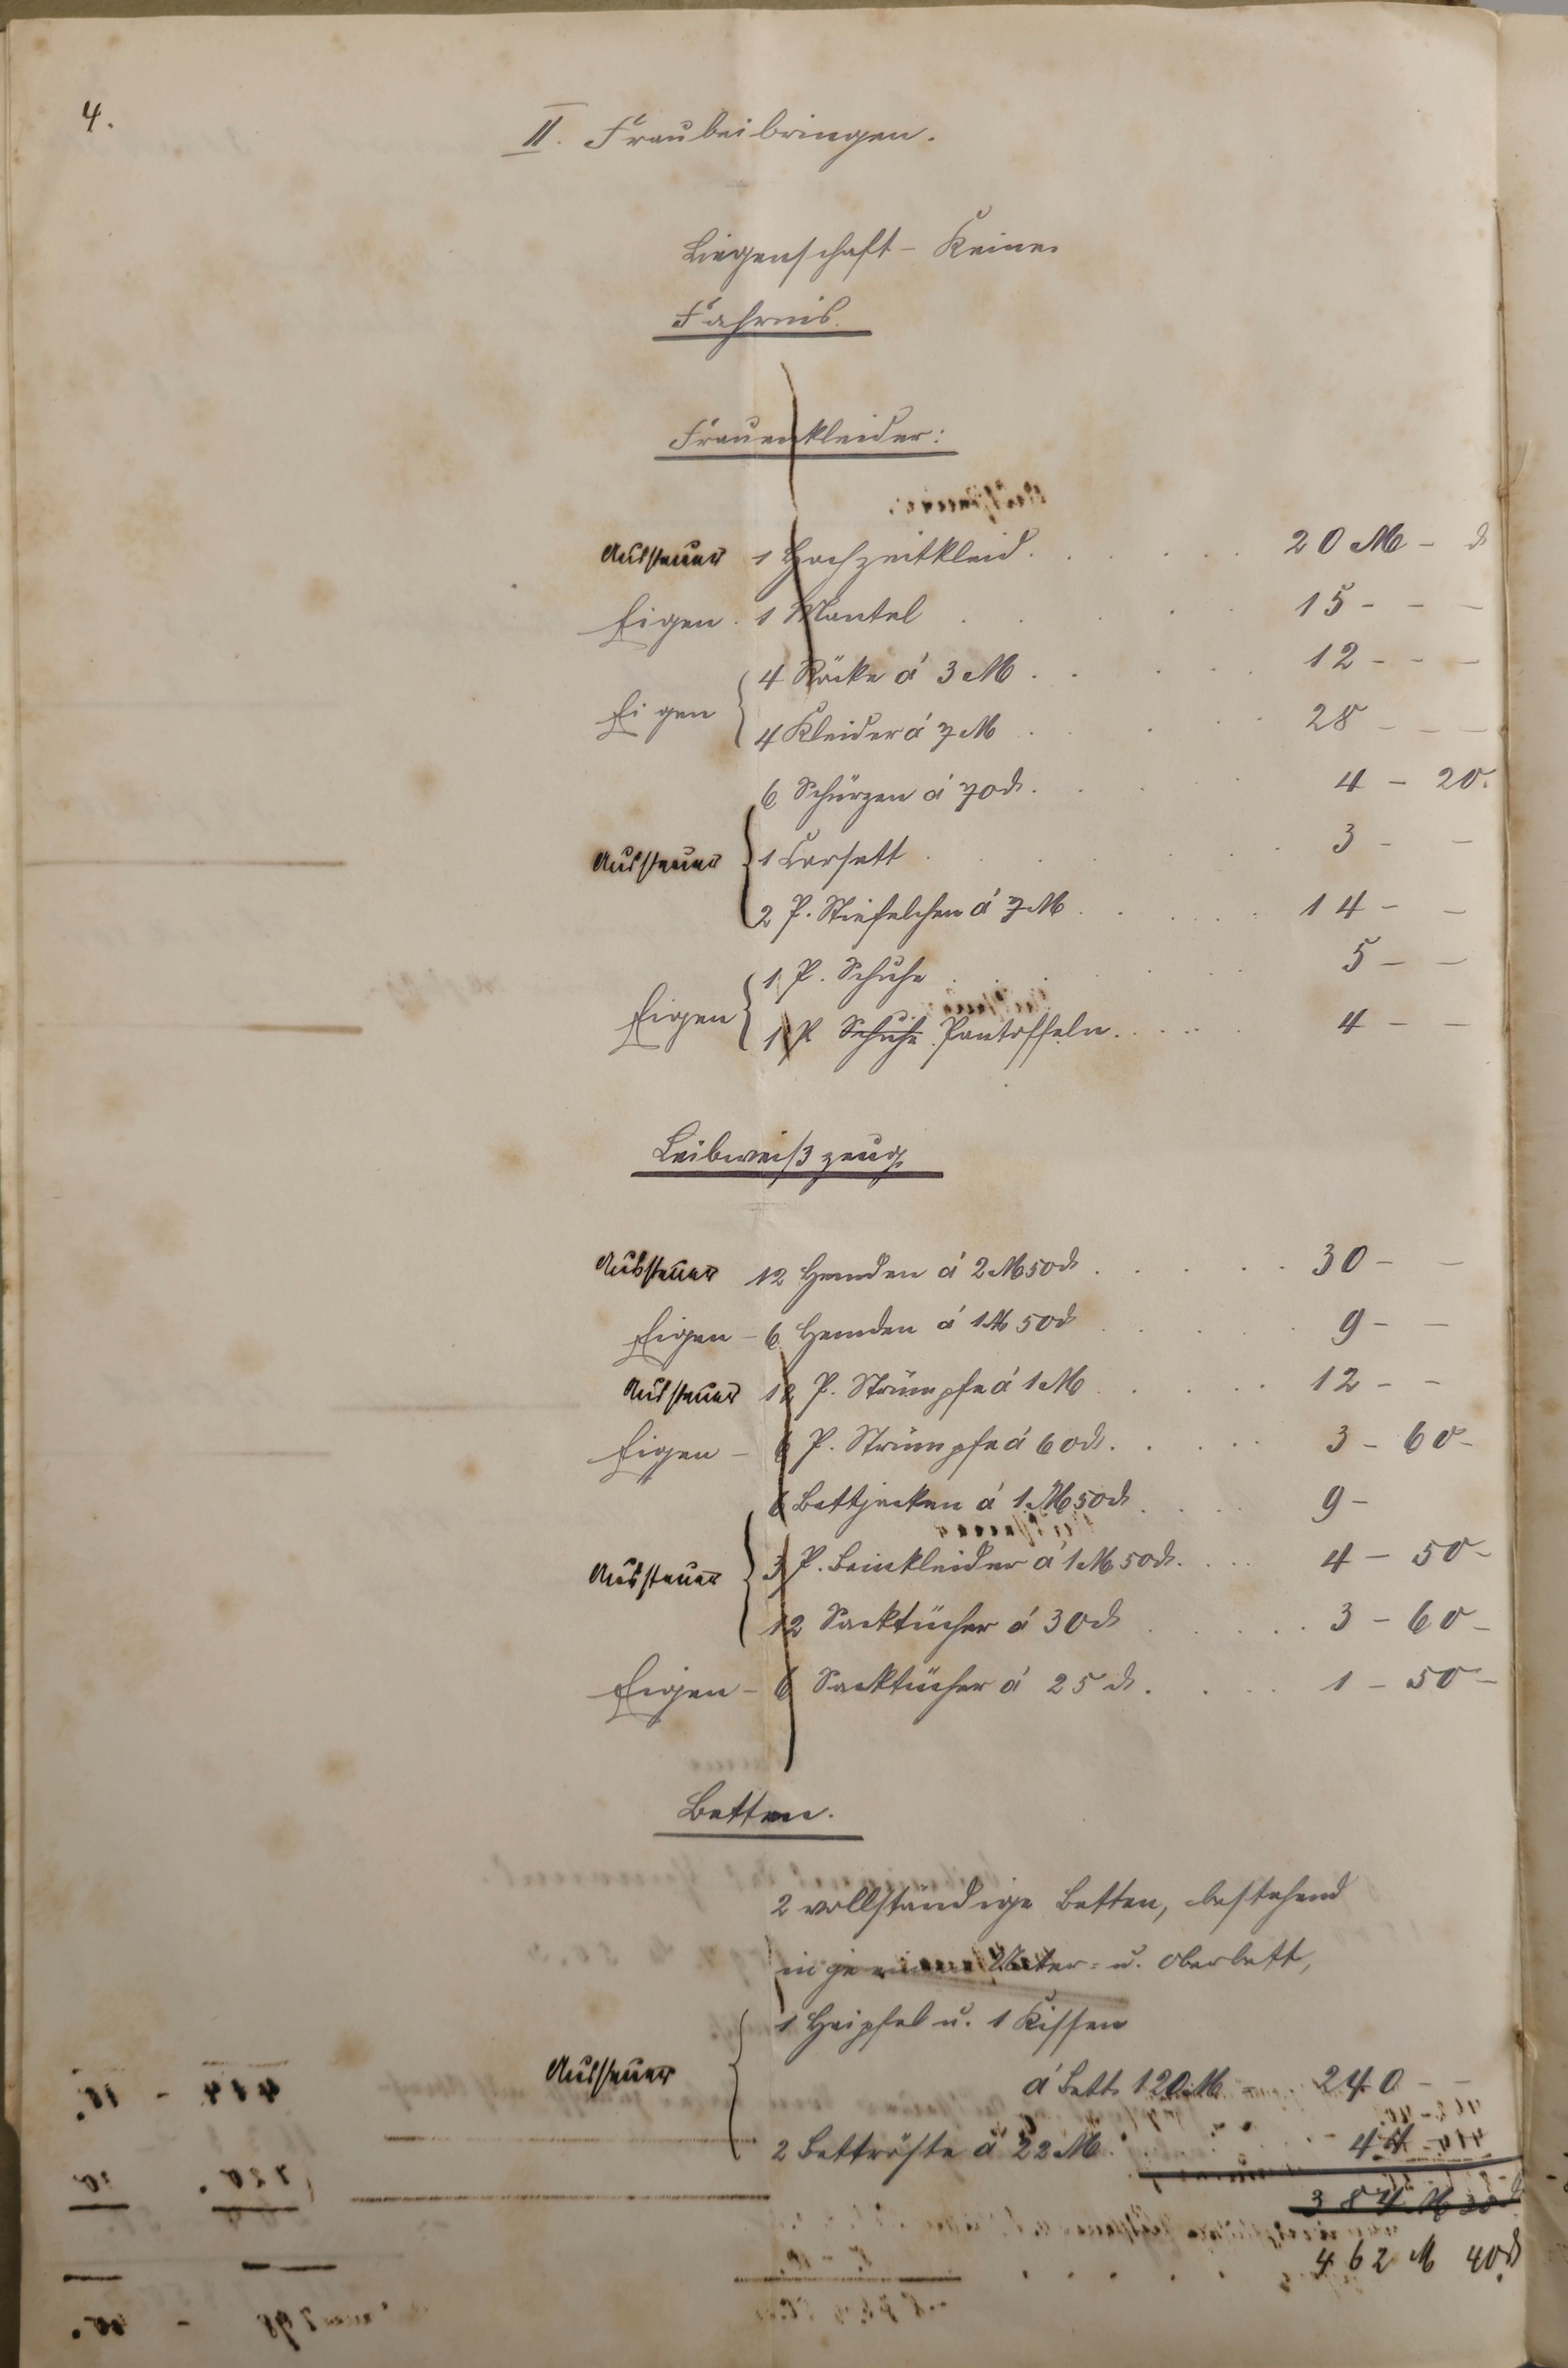 4.
II. Fraubeibringen.
Liegenschaft – Keine.
Fahrnis.
Frauenkleider:
Aussteuer 1 Hochzeitkleid . . . . . 20 M – ₰
Eigen . 1 Mantel . . . . . 15 – – –
Eigen { 4 Röcke á 3 M . . . . . 12 – – –
4 Kleider á 7 M . . . . 28 – – –
6 Schürzen á 70 ₰ . . . . 4 – 20.
Aussteuer { 1 Corsett . . . . . 3 – –
2 P. Stiefelchen á 7 M . . . . . 14 – –
Eigen { 1 P. Schuhe . . . . . 5 – –
1 P. Schuhe Pantoffeln . . . . . 4 – –
Leibweißzeug
Aussteuer 12 Hemden á 2 M 50 ₰ . . . . . 30 – –
Eigen – 6 Hemden á 1 M 50 ₰ . . . . . 9 – –
Aussteuer 12 P. Strümpfe á 1 M . . . . . 12 – –
Eigen – 6 P. Strümpfe á 60 ₰ . . . . . 3 – 60 –
6 Bettjacken á 1 M 50 ₰ . . . . 9 –
Aussteuer { 3 P. Beinkleider á 1 M 50 ₰ . . . . 4 – 50 –
12 Sacktücher á 30 ₰ . . . . . 3 – 60 –
Eigen – 6 Sacktücher á 25 ₰ . . . . 1 – 50 –
Betten.
2 vollständige Betten, bestehend
in je einem Unter= u. Oberbett,
1 Haipfel u. 1 Kissen
Aussteuer { á Bett 120 M = 240 – –
2 Bettröste á 22 M . 44
384 M 30 ₰
462 M 40 ₰